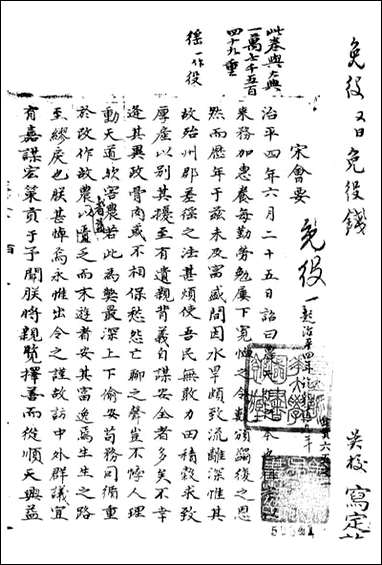 免役 又曰免役錢
宋會要
免役 一起治平四年
此卷與大典
一萬七千五百
四十九重
徭一作役
治平四年六月二十五日詔曰農
來務加惠養每勤勞勉屢下寬恤之令數頒蠲復之恩
然而歷年于茲未及富盛間因水旱頗致流離深惟其
故殆州郡差徭之法甚煩使吾民無敢力田積穀求致
厚產以別其擾至有遺親背義自謀安全者多矣不幸
逢其異政骨肉或不相保愁怨亡聊之聲豈不悖人理
動天道歟害農若此為弊最深上下偷安苟務因循重
於改作故農以遺之而末遊者安其富逸焉生生之路
至繆戾也朕甚悼焉永惟出令之謹故訪中外群議宜
有嘉謀宏策貢于予聞朕將親覽擇善而從順天興益
吳校 寫定